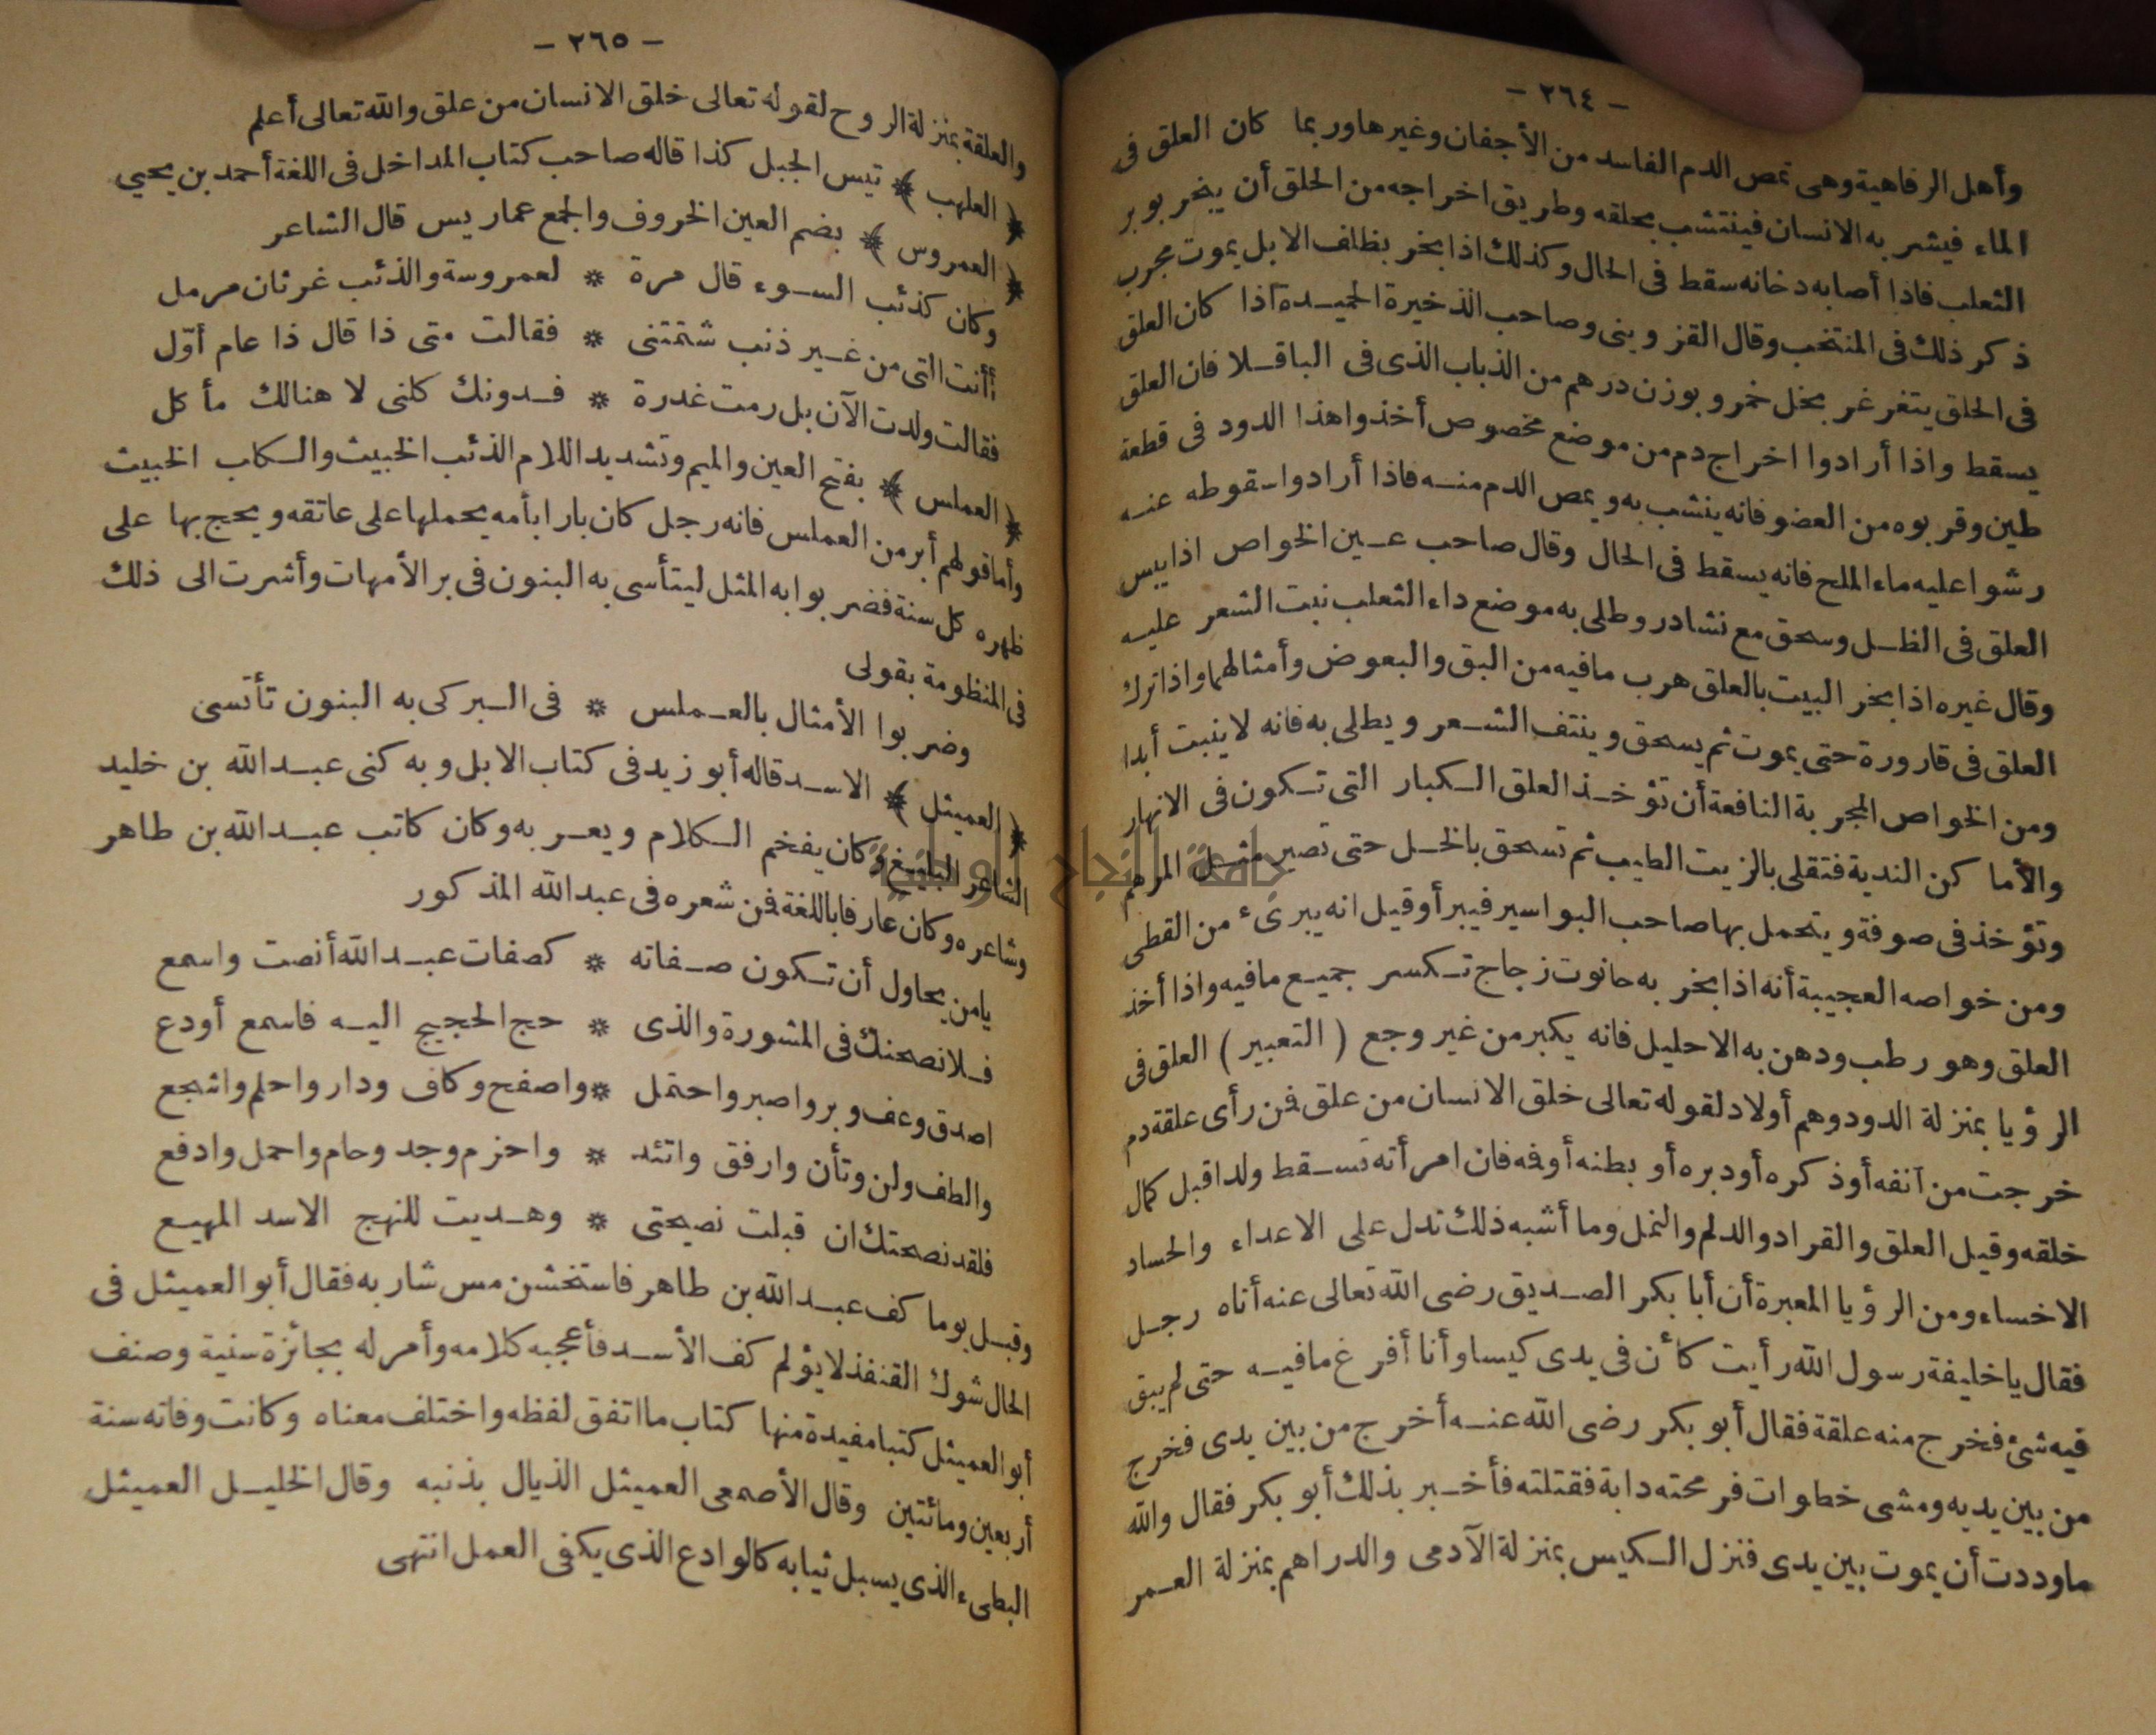 - ٢٦٤ -
وأهل الرفاهية وهى تمص الدم الفاسد من الأجفان وغيرها وربما كان العلق فى
الماء فيشر به الانسان فينتشب بحلقه وطريق اخراجه من الحلق أن يبخر بوبر
الثعلب فاذا أصابه دخانه سقط فى الحال وكذلك اذا بخر بظلف الابل يموت مجرب
ذكر ذلك فى المنتخب وقال القزوينى وصاحب الذخيرة الحميدة اذا كان العلق
فى الحلق يتغرغر بخل خمر وبوزن درهم من الذباب الذى فى الباقلا فان العلق
يسقط واذا أرادوا اخراج دم من موضع مخصوص أخذوا هذا الدود فى قطعة
طين وقربوه من العضو فانه ينشب به ويمص الدم منه فاذا أرادوا سقوطه عنه
رشوا عليه ماء الملح فانه يسقط فى الحال وقال صاحب عين الخواص اذا يبس
العلق فى الظل وسحق مع نشادر وطلى به موضع داء الثعلب نبت الشعر عليه
وقال غيره اذا بخر البيت بالعلق هرب مافيه من البق والبعوض وأمثالهما واذا ترك
العلق فى قارورة حتى يموت ثم يسحق وينتف الشعر ويطلى به فانه لا ينبت أبدا
ومن الخواص المجربة النافعة أن تؤخذ العلق الكبار التى تكون فى الانهار
والأماكن الندية فتقلى بالزيت الطيب ثم تسحق بالخل حتى تصير مثل المرهم
وتؤخذ فى صوفة ويتحمل بها صاحب البواسير فيبرأ وقيل انه يبرىء من القطى
ومن خواصه العجيبة أنه اذا بخر به حانوت زجاج تكسر جميع مافيه واذا أخذ
العلق وهو رطب ودهن به الاحليل فانه يكبر من غير وجع ( التعبير ) العلق فى
الرؤيا بمنزلة الدود وهم أولاد لقوله تعالى خلق الانسان من علق فمن رأى علقة دم
خرجت من أنفه أو ذكره أو دبره أو بطنه أو فمه فان امرأته تسقط ولدا قبل كمال
خلقه وقيل العلق والقراد والدلم والنمل وما أشبه ذلك تدل على الاعداء والحساد
الاخساء ومن الرؤيا المعبرة أن أبا بكر الصديق رضى الله تعالى عنه أتاه رجل
فقال يا خليفة رسول الله رأيت كأن فى يدى كيسا وأنا أفرغ مافيه حتى لم يبق
فيه شئ فخرج منه علقة فقال أبو بكر رضى الله عنه أخرج من بين يدى فخرج
من بين يديه ومشى خطوات فرمحته دابة فقتلته فأخبر بذلك أبو بكر فقال والله
ماوددت أن يموت بين يدى فنزل الكيس بمنزلة الآدمى والدراهم بمنزلة العمر
- ٢٦٥ -
والعلقة بمنزلة الروح لقوله تعالى خلق الانسان من علق والله تعالى أعلم
﴿ العلهب ﴾ تيس الجبل كذا قاله صاحب كتاب المداخل فى اللغة أحمد بن يحيى
﴿ العمروس ﴾ بضم العين الخروف والجمع عماريس قال الشاعر
وكان كذئب السوء قال مرة * لعمروسة والذئب غرثان مرمل
أأنت التى من غير ذنب شتمتنى * فقالت متى ذا قال ذا عام أول
فقالت ولدت الآن بل رمت غدرة * فدونك كلنى لا هنالك مأكل
﴿ العملس ﴾ بفتح العين والميم وتشديد اللام الذئب الخبيث والكلب الخبيث
وأما قولهم أبر من العملس فانه رجل كان بارا بأمه يحملها على عاتقه ويحج بها على
ظهره كل سنة فضربوا به المثل ليتأسى به البنون فى بر الأمهات وأشرت الى ذلك
فى المنظومة بقولى
وضربوا الأمثال بالعملس * فى البر كى به البنون تأتسى
﴿ العميثل ﴾ الاسد قاله أبو زيد فى كتاب الابل وبه كنى عبد الله بن خليد
الشاعر البليغ وكان يفخم الكلام ويعربه وكان كاتب عبد الله بن طاهر
وشاعره وكان عارفا باللغة فمن شعره فى عبد الله المذكور
يامن يحاول أن تكون صفاته * كصفات عبد الله أنصت واسمع
فلانصحنك فى المشورة والذى * حج الحجيج اليه فاسمع أودع
اصدق وعف وبر واصبر واحتمل * واصفح وكاف ودار واحلم واشجع
والطف ولن وتأن وارفق واتئد * واحزم وجد وحام واحمل وادفع
فلقد نصحتك ان قبلت نصيحتى * وهديت للنهج الاسد المهيع
وقبل يوما كف عبد الله بن طاهر فاستخشن مس شاربه فقال أبو العميثل فى
الحال شوك القنفذ لا يؤلم كف الأسد فأعجبه كلامه وأمر له بجائزة سنية وصنف
أبو العميثل كتبا مفيدة منها كتاب ما اتفق لفظه واختلف معناه وكانت وفاته سنة
أربعين ومائتين وقال الأصمعى العميثل الذيال بذنبه وقال الخليل العميثل
البطىء الذى يسبل ثيابه كالوادع الذى يكفى العمل انتهى
جامعة النجاح الوطنية